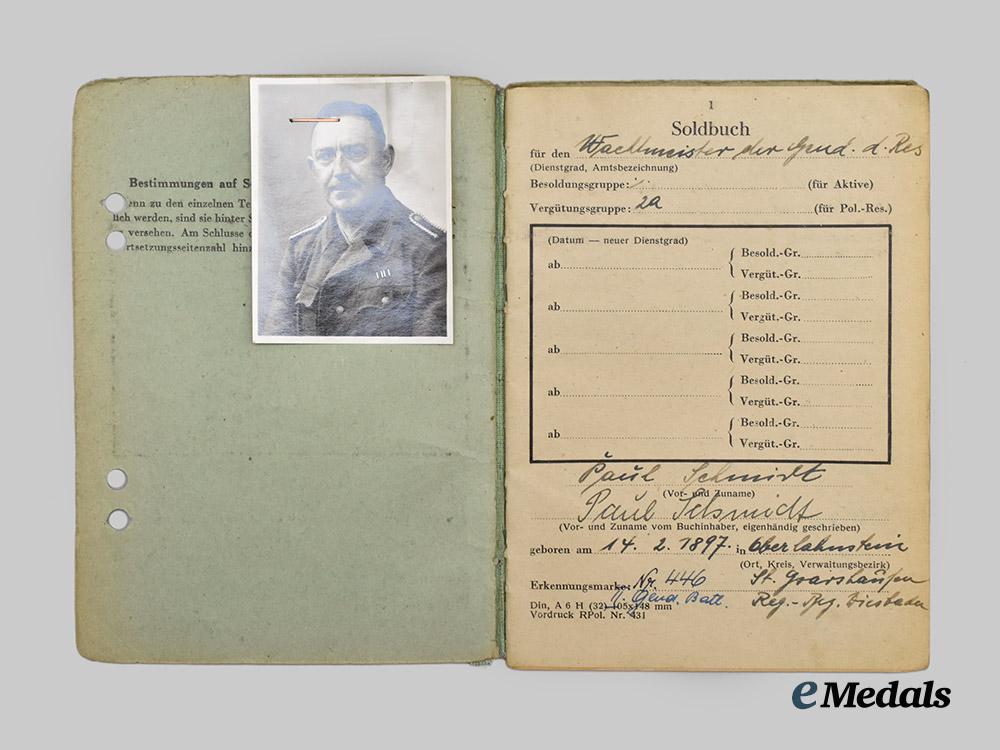 Bestimmungen auf S
enn zu den einzelnen Te
lich werden, sind sie hinter S
versehen. Am Schlusse
rtsetzungseitenzahl hinz
1
Soldbuch
für den Wachtmeister der Gend. d. Res
(Dienstgrad, Amtsbezeichnung)
Besoldungsgruppe: (für Aktive)
Vergütungsgruppe: 2a (für Pol.-Res.)
(Datum — neuer Dienstgrad)
ab { Besold.-Gr.
Vergüt.-Gr.
ab { Besold.-Gr.
Vergüt.-Gr.
ab { Besold.-Gr.
Vergüt.-Gr.
ab { Besold.-Gr.
Vergüt.-Gr.
ab { Besold.-Gr.
Vergüt.-Gr.
Paul Schmidt
(Vor- und Zuname)
Paul Schmidt
(Vor- und Zuname vom Buchinhaber, eigenhändig geschrieben)
geboren am 14. 2. 1897. in Oberlahnstein
(Ort, Kreis, Verwaltungsbezirk)
Erkennungsmarke: Nr. 446 St. Goarshausen
Gend. Batl. Reg.-Bez. Wiesbaden
Din, A 6 H (32) 105x148 mm
Vordruck RPol. Nr. 431
eMedals